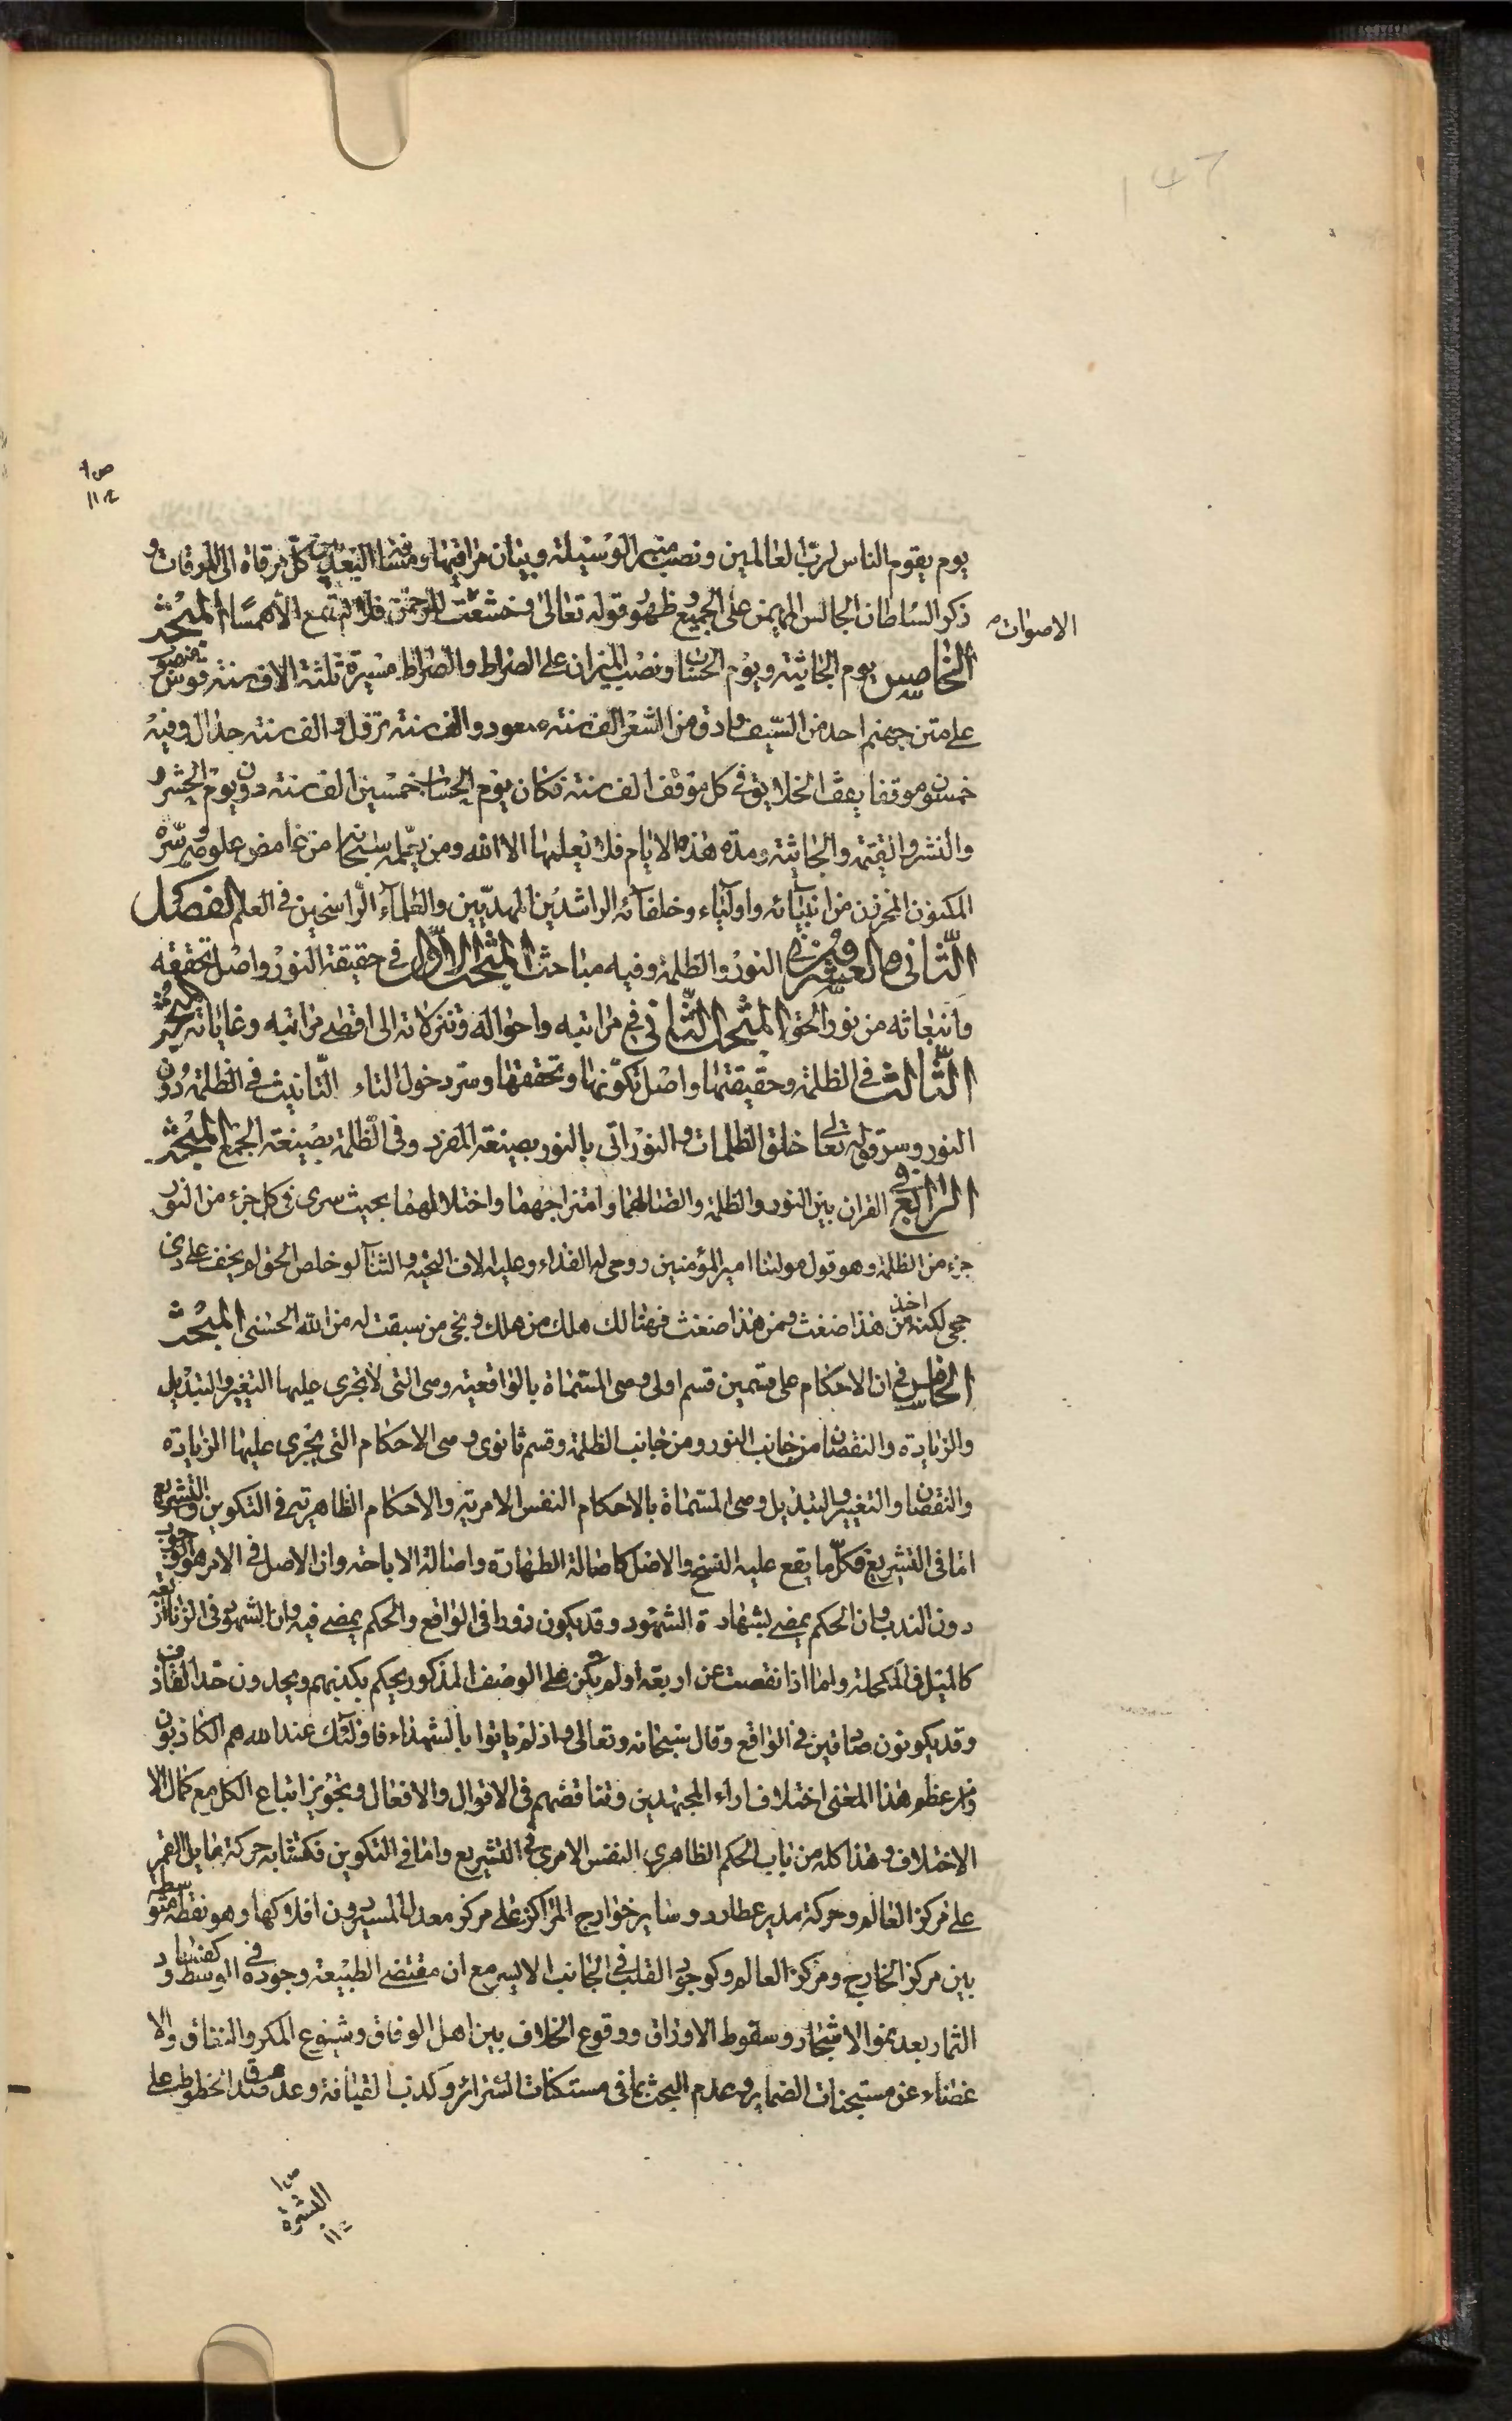 يوم يقوم الناس لرب العالمين ونصب منبر الوسيلة وبيان مراقيها ومسافة البعد بين كل مرقاة الى المرقات و
ذكر السلطان الجالس المهيمن على الجميع وظهور قوله تعالى وخشعت للرحمن فلا تسمع الا همسا المبحث
الاصوات
الخامس يوم الجاثية ويوم الحساب ونصب الميزان على الصراط والصراط مسيرة ثلثة الاف سنة قوس منصوب
على متن جهنم احد من السيف وادق من الشعر الف سنة صعود والف سنة نزول والف سنة حدال وفيه
خمسون موقفا يقف الخلايق في كل موقف الف سنة فكان يوم الحساب خمسين الف سنة دون يوم الحشر و
والنشر والقيمة والجاثية ومدة هذه الايام فلا يعلمها الا الله ومن يحمله سبحانه من غامض علومه وسره
المكنون المخزون من انبيائه واولياء وخلفائه الراشدين المهديين والعلماء الراسخين في العلم الفصل
الثاني والعشرون في النور والظلمة وفيه مباحث المبحث الاول في حقيقة النور واصل تحققه
وانبعاثه من نور الحق المبحث الثاني في مراتبه واحواله وتنزلاته الى اقصى مراتبه وغاياته المبحث
الثالث في الظلمة وحقيقتها واصل تكونها وتحققها وسر دخول التاء التانيث في الظلمة دون
النور وسر قوله تعالى خلق الظلمات والنور اتى بالنور بصيغة المفرد وفي الظلمة بصيغة الجمع المبحث
الرابع في القران بين النور والظلمة واتصالهما وامتزاجهما واختلاطهما بحيث سرى في كل جزء من النور
جزء من الظلمة وهو قول مولينا امير المؤمنين روحي له الفداء وعليه الاف التحية والثناء لو خلص الحق لم يخف على ذي
حجى لكنه اخذ من هذا ضغث ومن هذا ضغث فهنالك هلك من هلك ونجى من سبقت له من الله الحسنى المبحث
الخامس في ان الاحكام على قسمين قسم اولى وهى المسماة بالواقعية وهى التى لا تجرى عليها التغيير والتبديل
والزيادة والنقصان من جانب النور ومن جانب الظلمة وقسم ثانوى وهى الاحكام التى يجرى عليها الزيادة
والنقصان والتغيير والتبديل وهى المسماة بالاحكام النفس الامرية والاحكام الظاهرية في التكوين والتشريع
اما في التشريع فكل ما يقع عليه النسخ والاصل كاصالة الطهارة واصالة الاباحة وان الاصل في الامر هو الوجوب
دون الندب وان الحكم يمضى بشهادة الشهود وقد يكون زورا في الواقع والحكم يمضى فيه وان الشهود في الزنا اربعة
كالميل في المكحلة واما اذا نقصت عن اربعة او لم يكن على الوصف المذكور يحكم بكذبهم ويحدون حد القاذف
وقد يكونون صادقين في الواقع وقال سبحانه وتعالى واذ لم ياتوا بالشهداء فاولئك عند الله هم الكاذبون
ومن عظم هذا المعنى اختلاف اراء المجتهدين وتناقضهم في الاقوال والافعال وتجويز اتباع الكل مع كمال الا
الاختلاف وهذا كله من باب الحكم الظاهرى النفس الامرى في التشريع واما في التكوين فكتشابه حركة مايل القمر
على مركز العالم وحركة مدير عطارد وساير خوارج المراكز على مركز معدل المسير دون افلاكها وهو نقطة متوسطة
بين مركز الخارج ومركز العالم وكوجود القلب في الجانب الايسر مع ان مقتضى الطبيعة وجوده في الوسط وكفساد
الثمار بعد نمو الاشجار وسقوط الاوراق ووقوع الخلاف بين اهل الوفاق وشيوع المكر والنفاق والا
غضاء عن مستجنات الضماير وعدم البحث بما في مستكنات السرائر وكذب القيافة وعدم صدق الخطوط على